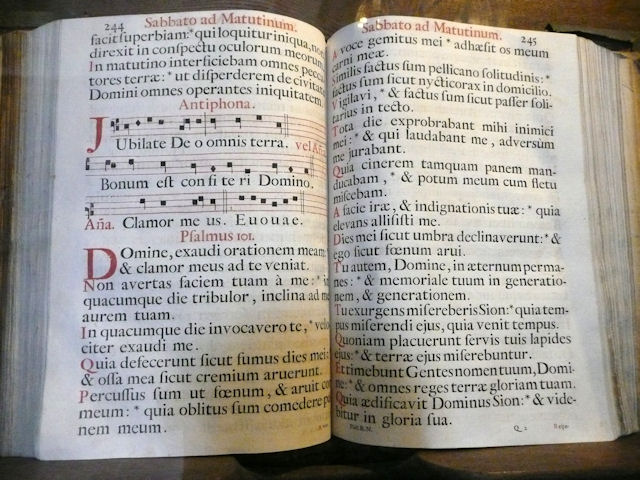 244
Sabbato ad Matutinum.
facit superbiam: * qui loquitur iniqua, non
direxit in conspectu oculorum meorum
In matutino interficiebam omnes pecca-
tores terræ: * ut disperderem de civitate
Domini omnes operantes iniquitatem.
Antiphona.
JUbilate Deo omnis terra. vel Aña.
Bonum est confiteri Domino.
Aña. Clamor meus. Euouae.
Psalmus 101.
DOmine, exaudi orationem meam: *
& clamor meus ad te veniat.
Non avertas faciem tuam à me: * in
quacumque die tribulor, inclina ad me
aurem tuam.
In quacumque die invocavero te, * velo-
citer exaudi me.
Quia defecerunt sicut fumus dies mei: *
& ossa mea sicut cremium aruerunt.
Percussus sum ut fœnum, & aruit cor
meum: * quia oblitus sum comedere pa-
nem meum.
Sabbato ad Matutinum. 245
A voce gemitus mei * adhæsit os meum
carni meæ.
Similis factus sum pellicano solitudinis: *
factus sum sicut nycticorax in domicilio.
Vigilavi, * & factus sum sicut passer soli-
tarius in tecto.
Tota die exprobrabant mihi inimici
mei: * & qui laudabant me, adversùm
me jurabant.
Quia cinerem tamquam panem man-
ducabam, * & potum meum cum fletu
miscebam.
A facie iræ, & indignationis tuæ: * quia
elevans allisisti me.
Dies mei sicut umbra declinaverunt: * &
ego sicut fœnum arui.
Tu autem, Domine, in æternum perma-
nes: * & memoriale tuum in generatio-
nem, & generationem.
Tu exurgens misereberis Sion: * quia tem-
pus miserendi ejus, quia venit tempus.
Quoniam placuerunt servis tuis lapides
ejus: * & terræ ejus miserebuntur.
Et timebunt Gentes nomen tuum, Domi-
ne: * & omnes reges terræ gloriam tuam.
Quia ædificavit Dominus Sion: * & vide-
bitur in gloria sua.
Q 2